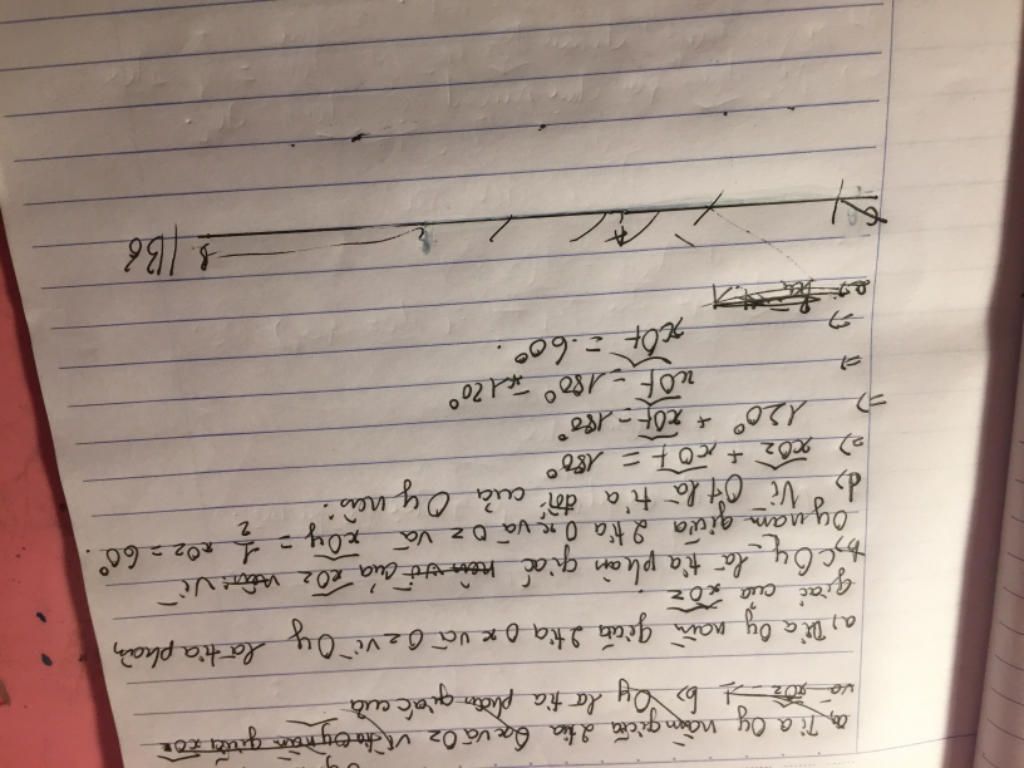 a, Tia Oy nằm giữa 2 tia Ox và Oz vì tia Oy nằm giữa xOz
và xOz b, Oy là tia phân giác của
a, Tia Oy nằm giữa 2 tia Ox và Oz vì Oy là tia phân
giác của xOz.
b, Oy là tia phân giác của xOz vì
Oy nằm giữa 2 tia Ox và Oz và xOy = 1/2 xOz = 60°.
d, Vì Ot là tia đối của Oy nên:
=> xOz + xOt = 180°
=> 120° + xOt = 180°
=> xOt = 180° - 120°
=> xOt = 60°.